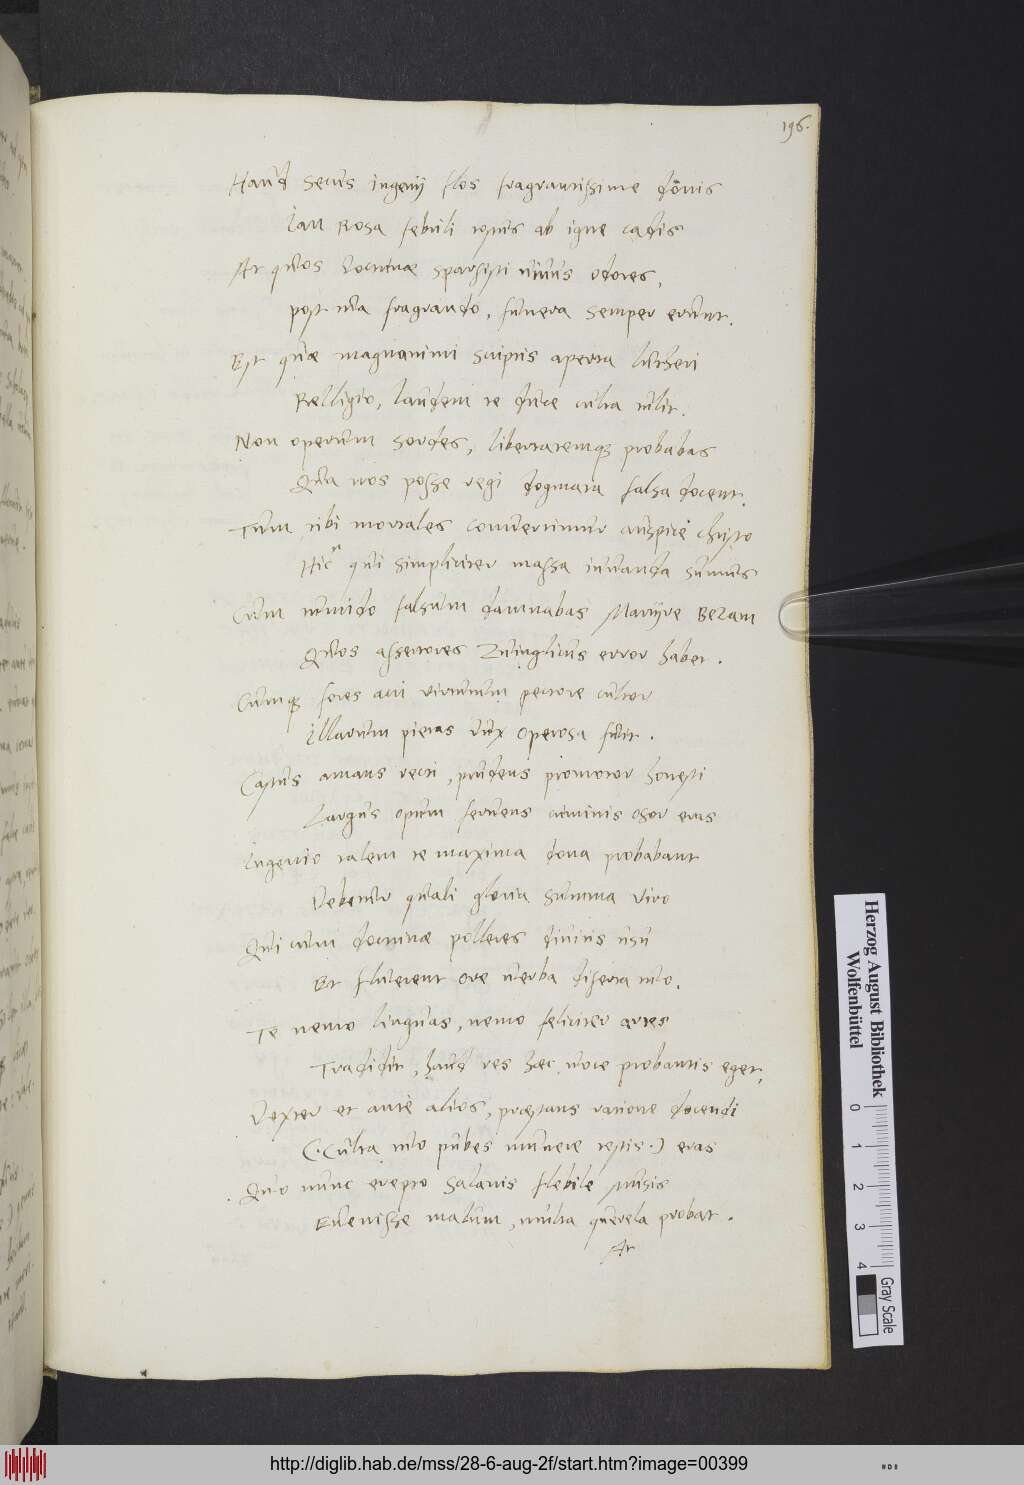 196.
Haud secus ingenij flos fragrantissime donis
Ian Rosa febrili tostus ab igne cadis
At quos doctrinae sparsisti vivus odores,
post tua fragrando, funera semper erunt.
Est quae magnanimi scriptis aperta Lutheri
Relligio, laudem te duce culta tulit.
Non operum sordes, libertatemque probabas
Qua nos posse regi dogmata falsa docent.
Tum tibi mortales convertimur auspice Christo
Hic qui simpliciter massa iuvanda sumus
Cum tumido falsum damnabas Martyre Bezam
Quos assertores Zvinglicus error habet.
Cumque fores acri virtutum pectore cultor
Illarum pietas dux operosa fuit.
Castus amans recti, prudens promotor honesti
Largus opum fervens criminis osor eras
Ingenio talem te maxima dona probabant
Debentur quali gloria summa viro
Qui cum doctrinae polleres divitis usu
Et fluerent ore verba diserta tuo.
Te nemo linguas, nemo feliciter artes
Tradidit, haud res haec voce probantis eget,
Dexter et ante alios, praestans ratione docendi
(.Culta tuo pubes munere testis.) eras
Quo nunc erepto Salanis flebile Musis
Evenisse malum, multa querela probat.
At
Herzog August Bibliothek
Wolfenbüttel
0 1 2 3 4
Gray Scale
http://diglib.hab.de/mss/28-6-aug-2f/start.htm?image=00399